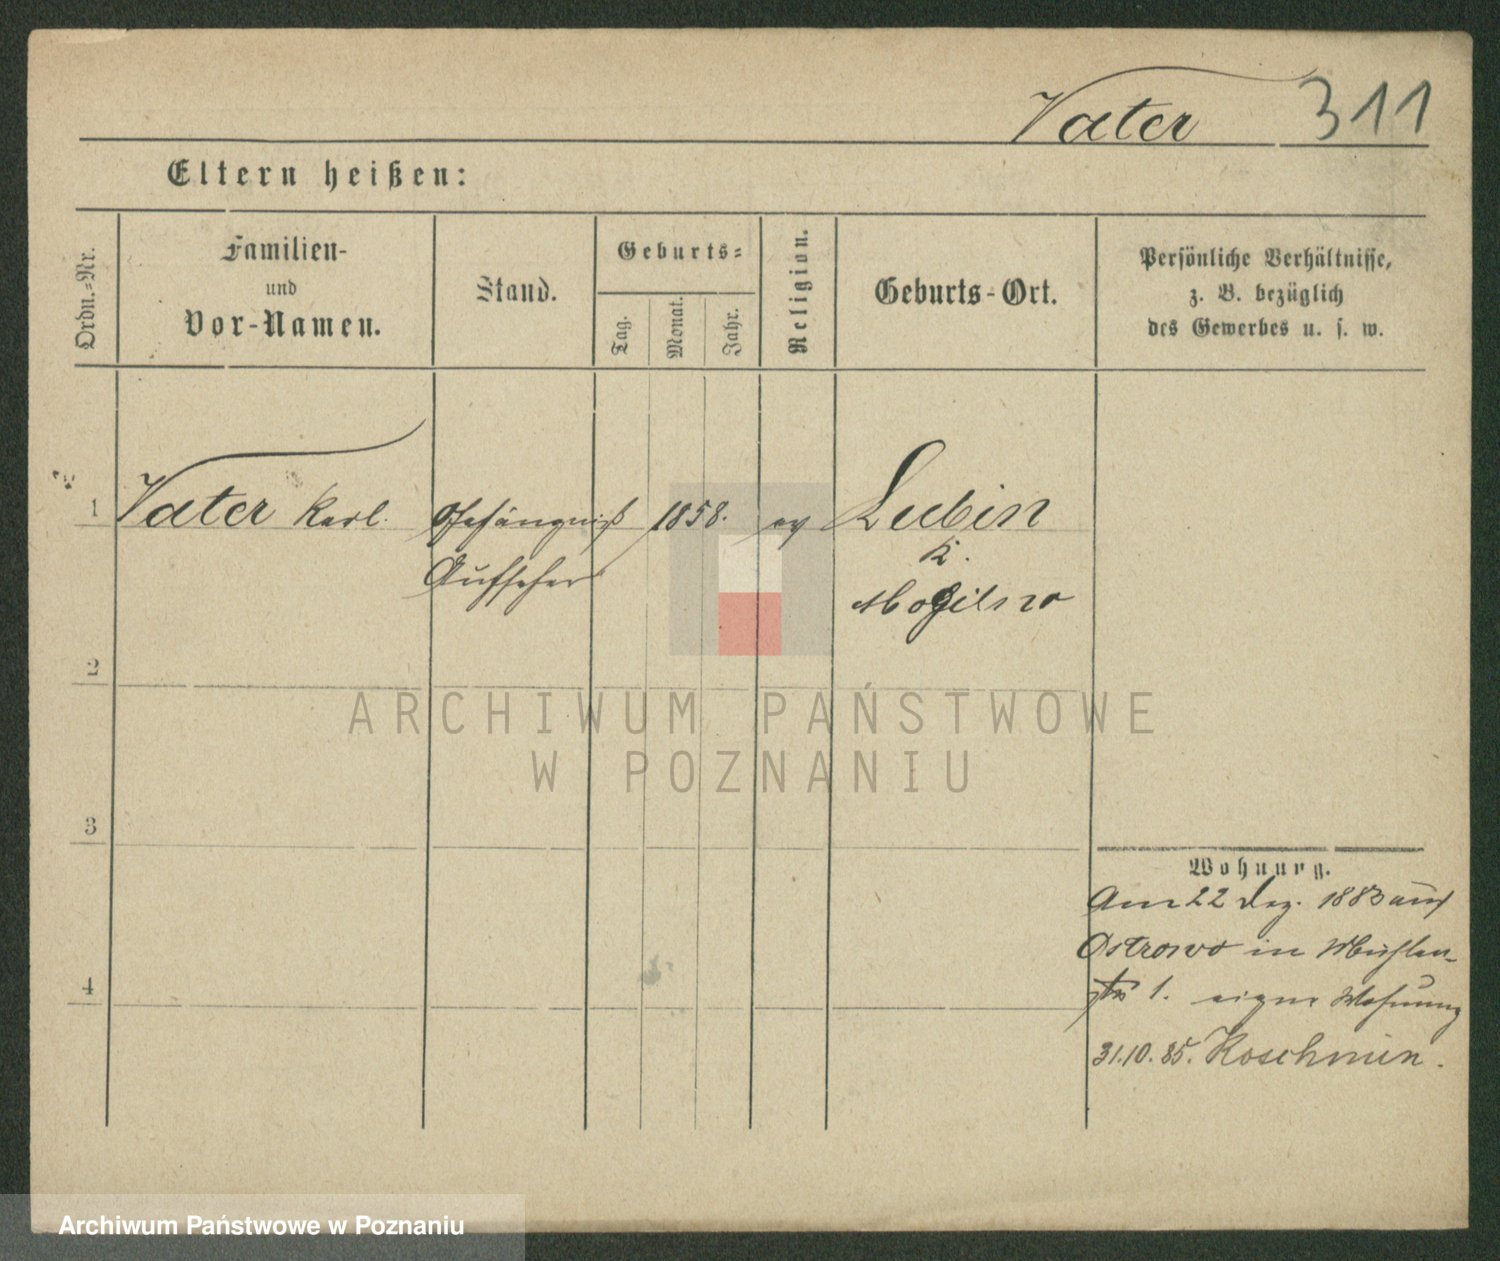 Vater 311
Eltern heißen:
Ordn.-Nr.
Familien-
und
Vor-Namen.
Stand.
Geburts-
Tag.
Monat.
Jahr.
Religion.
Geburts-Ort.
Persönliche Verhältnisse,
z. B. bezüglich
des Gewerbes u. s. w.
1 Vater Karl. Gefängniß 1858. ev Lubin
Aufseher K.
Mogilno
2
3
4
Wohnung.
Am 22 Dez. 1883 aus
Ostrowo in Mühlen-
str 1. eigne Wohnung
31.10.85. Koschmin.
ARCHIWUM PAŃSTWOWE
W POZNANIU
Archiwum Państwowe w Poznaniu